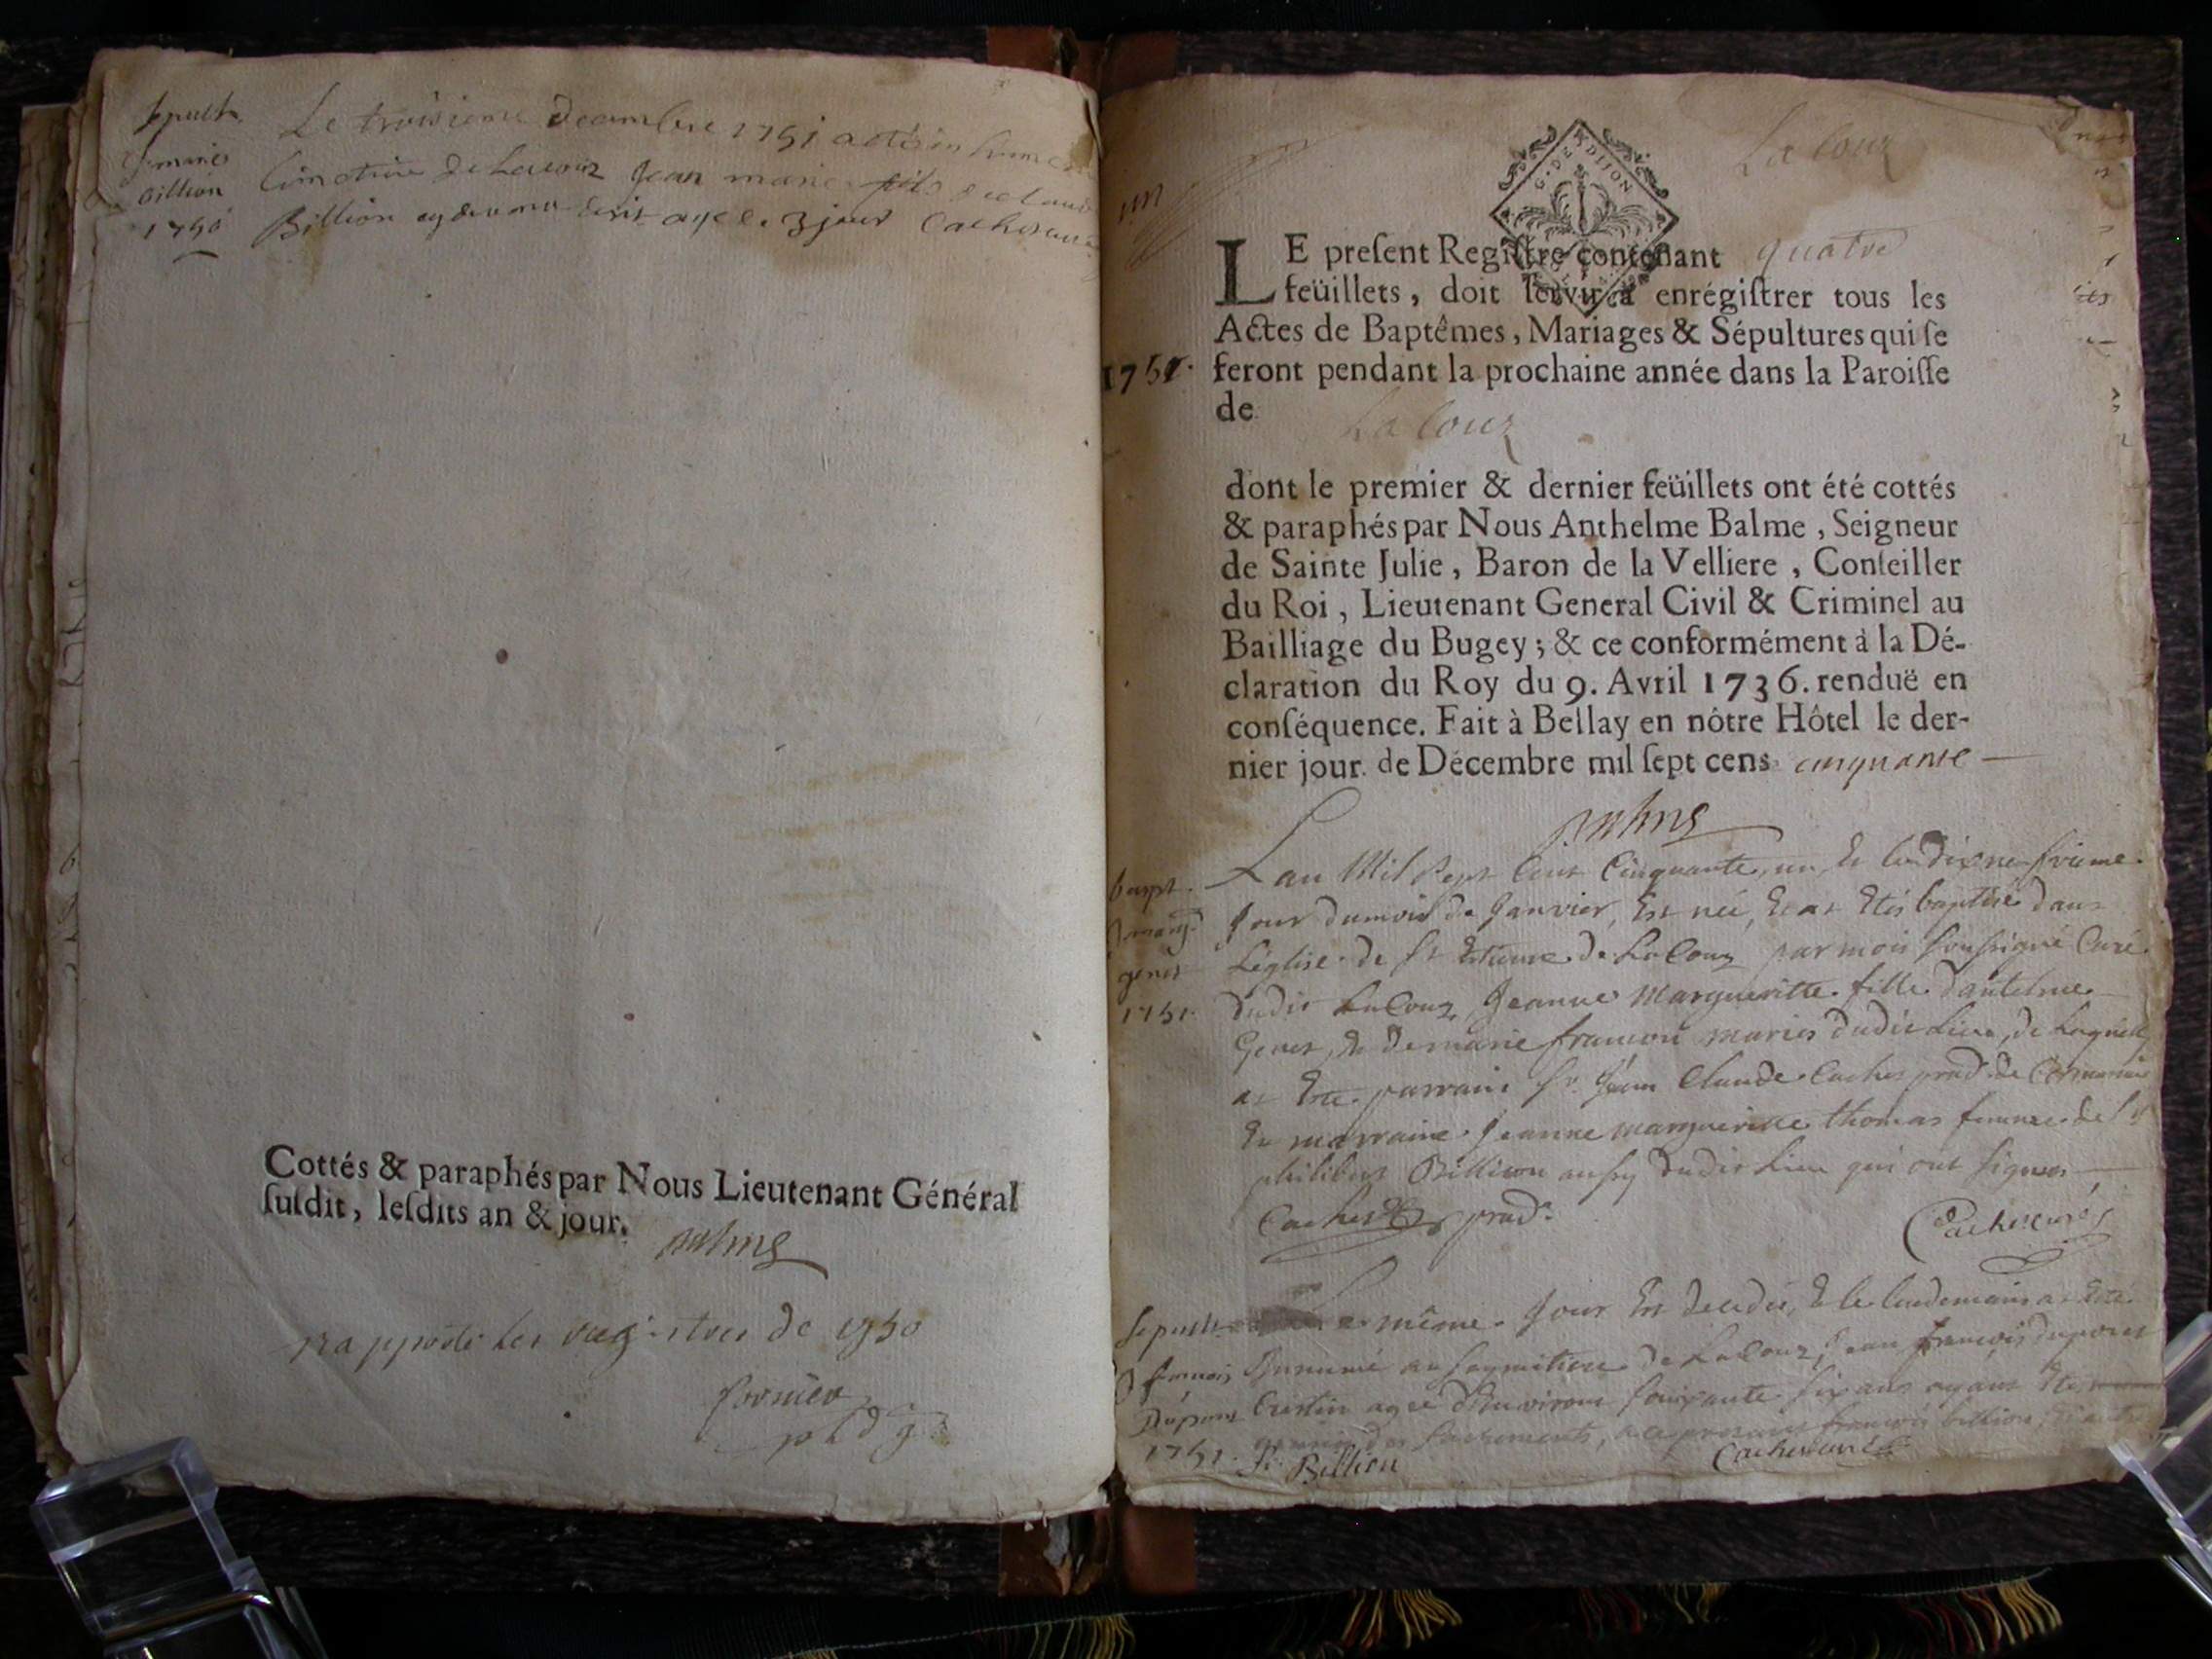 Sepult.
J marie
Billion
1750
Le troisieme decembre 1751 a eté inhumé
Cimetiere de Lacoux Jean marie fils de claude
Billion cy devant decrit agé de 3 jours Cacher curé
Cottés & paraphés par Nous Lieutenant Général
ſuſdit, leſdits an & jour.
Balme
Rapporté les registres de 1750
La Couz
un
G. DE DIJON
LE preſent Regiſtre contenant quatre
feüillets, doit ſervir à enrégiſtrer tous les
Actes de Baptêmes, Mariages & Sépultures qui ſe
1751. feront pendant la prochaine année dans la Paroiſſe
de La Couz
dont le premier & dernier feüillets ont été cottés
& paraphés par Nous Anthelme Balme, Seigneur
de Sainte Julie, Baron de la Velliere, Conſeiller
du Roi, Lieutenant General Civil & Criminel au
Bailliage du Bugey; & ce conformément à la Dé-
claration du Roy du 9. Avril 1736. renduë en
conſéquence. Fait à Bellay en nôtre Hôtel le der-
nier jour de Décembre mil ſept cens cinquante
Balme
bapt.
J marg.
genet
1751.
L'an Mil Sept Cent Cinquante un, & le dixneufvieme
Jour du mois de Janvier, Est née, Et at Etés baptisé dans
L'église de St Etienne de La Couz par mois soussigné Curé
dudit La Couz, Jeanne Margueritte fille d'antelme
Genet, & de marie francon mariés dudit Lieu, de Laquelle
at Ette parrain Sr. Jean Claude Cacher prad. de Cormaranche
Et marraine Jeanne margueritte thomas femme de Sr
philibert Billion aussy dudit Lieu qui ont signés
Cacher prad.
Cacher curé
Sepult.
J francois
Dupont
1751.
Le même Jour Est decedé, & le lendemain at Ette
Innumé au saymetiere de La Couz, Jean francois dupont
Cristin agée d'Environ soixante six ans ayant Ete
des sacrements, presents francois billion, & autre
fr. Billion
Cacher curé